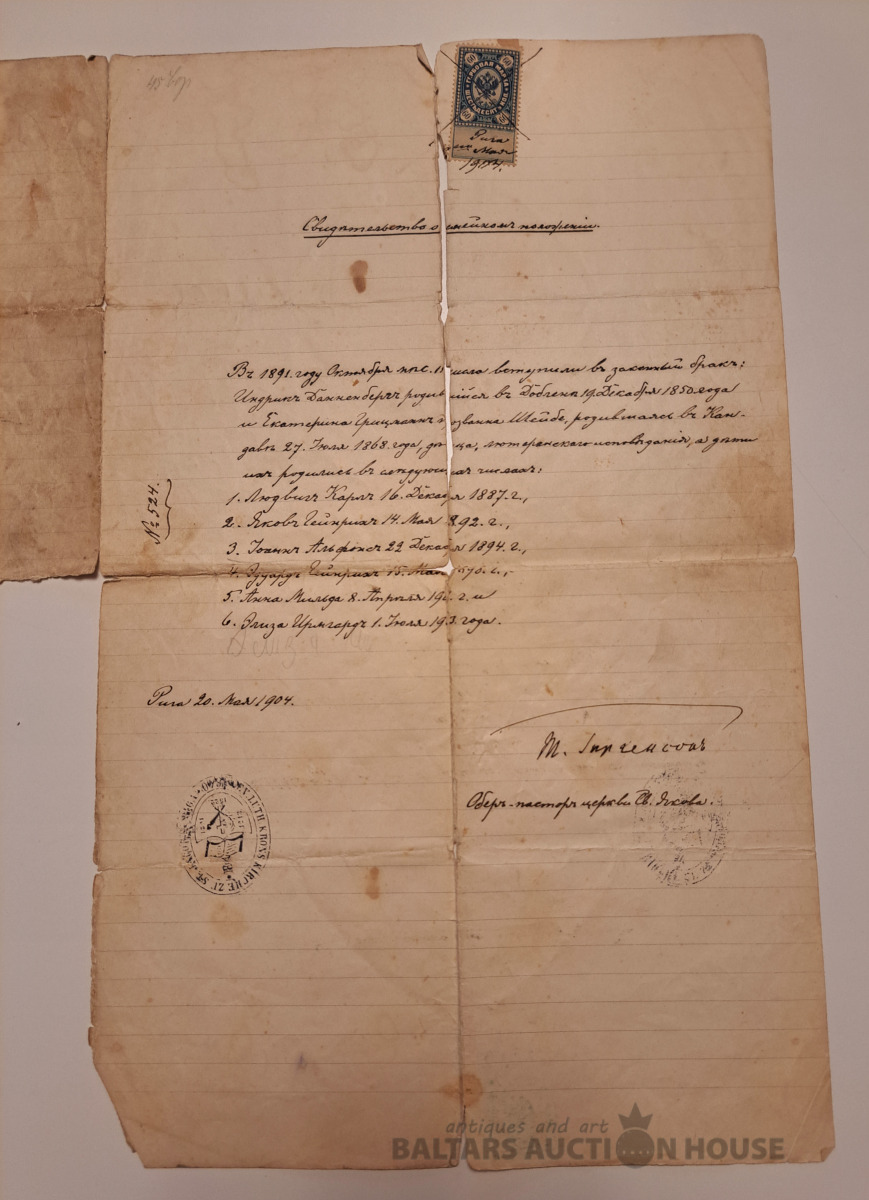 45 к
60 60
ГЕРБОВАЯ МАРКА
ШЕСТЬДЕСЯТ КОП.
60 60
Рига
Мая
1904.
Свидѣтельство о семейномъ положеніи.
Въ 1891. году Октября числа вступили въ законный бракъ:
Индрикъ Данненбергъ родившійся въ Доблене 19. Декабря 1850. года
и Екатерина Грицманъ прозванна Шейбе, родившаясь въ Кан-
давѣ 27. Іюля 1868. года, лютеранскаго исповѣданія, а дѣти
ихъ родились въ слѣдующихъ числахъ:
№ 524.
1. Людвигъ Карлъ 16. Декабря 1887. г.,
2. Яковъ Гейнрихъ 14. Мая 1892. г.,
3. Іоаннъ Альфонсъ 22 Декабря 1894. г.,
4. Эдуардъ Гейнрихъ 15. Мая г.,
5. Анна Мильда 8. Апрѣля г. и
6. Элиза Ирмгардъ 1. Іюля года.
Рига 20. Мая 1904.
Т. Гиргенсонъ
Оберъ-пасторъ церкви Св. Якова.
EV. LUTH. KRONS KIRCHE ZU ST. JACOB
antiques and art
BALTARS AUCTION HOUSE